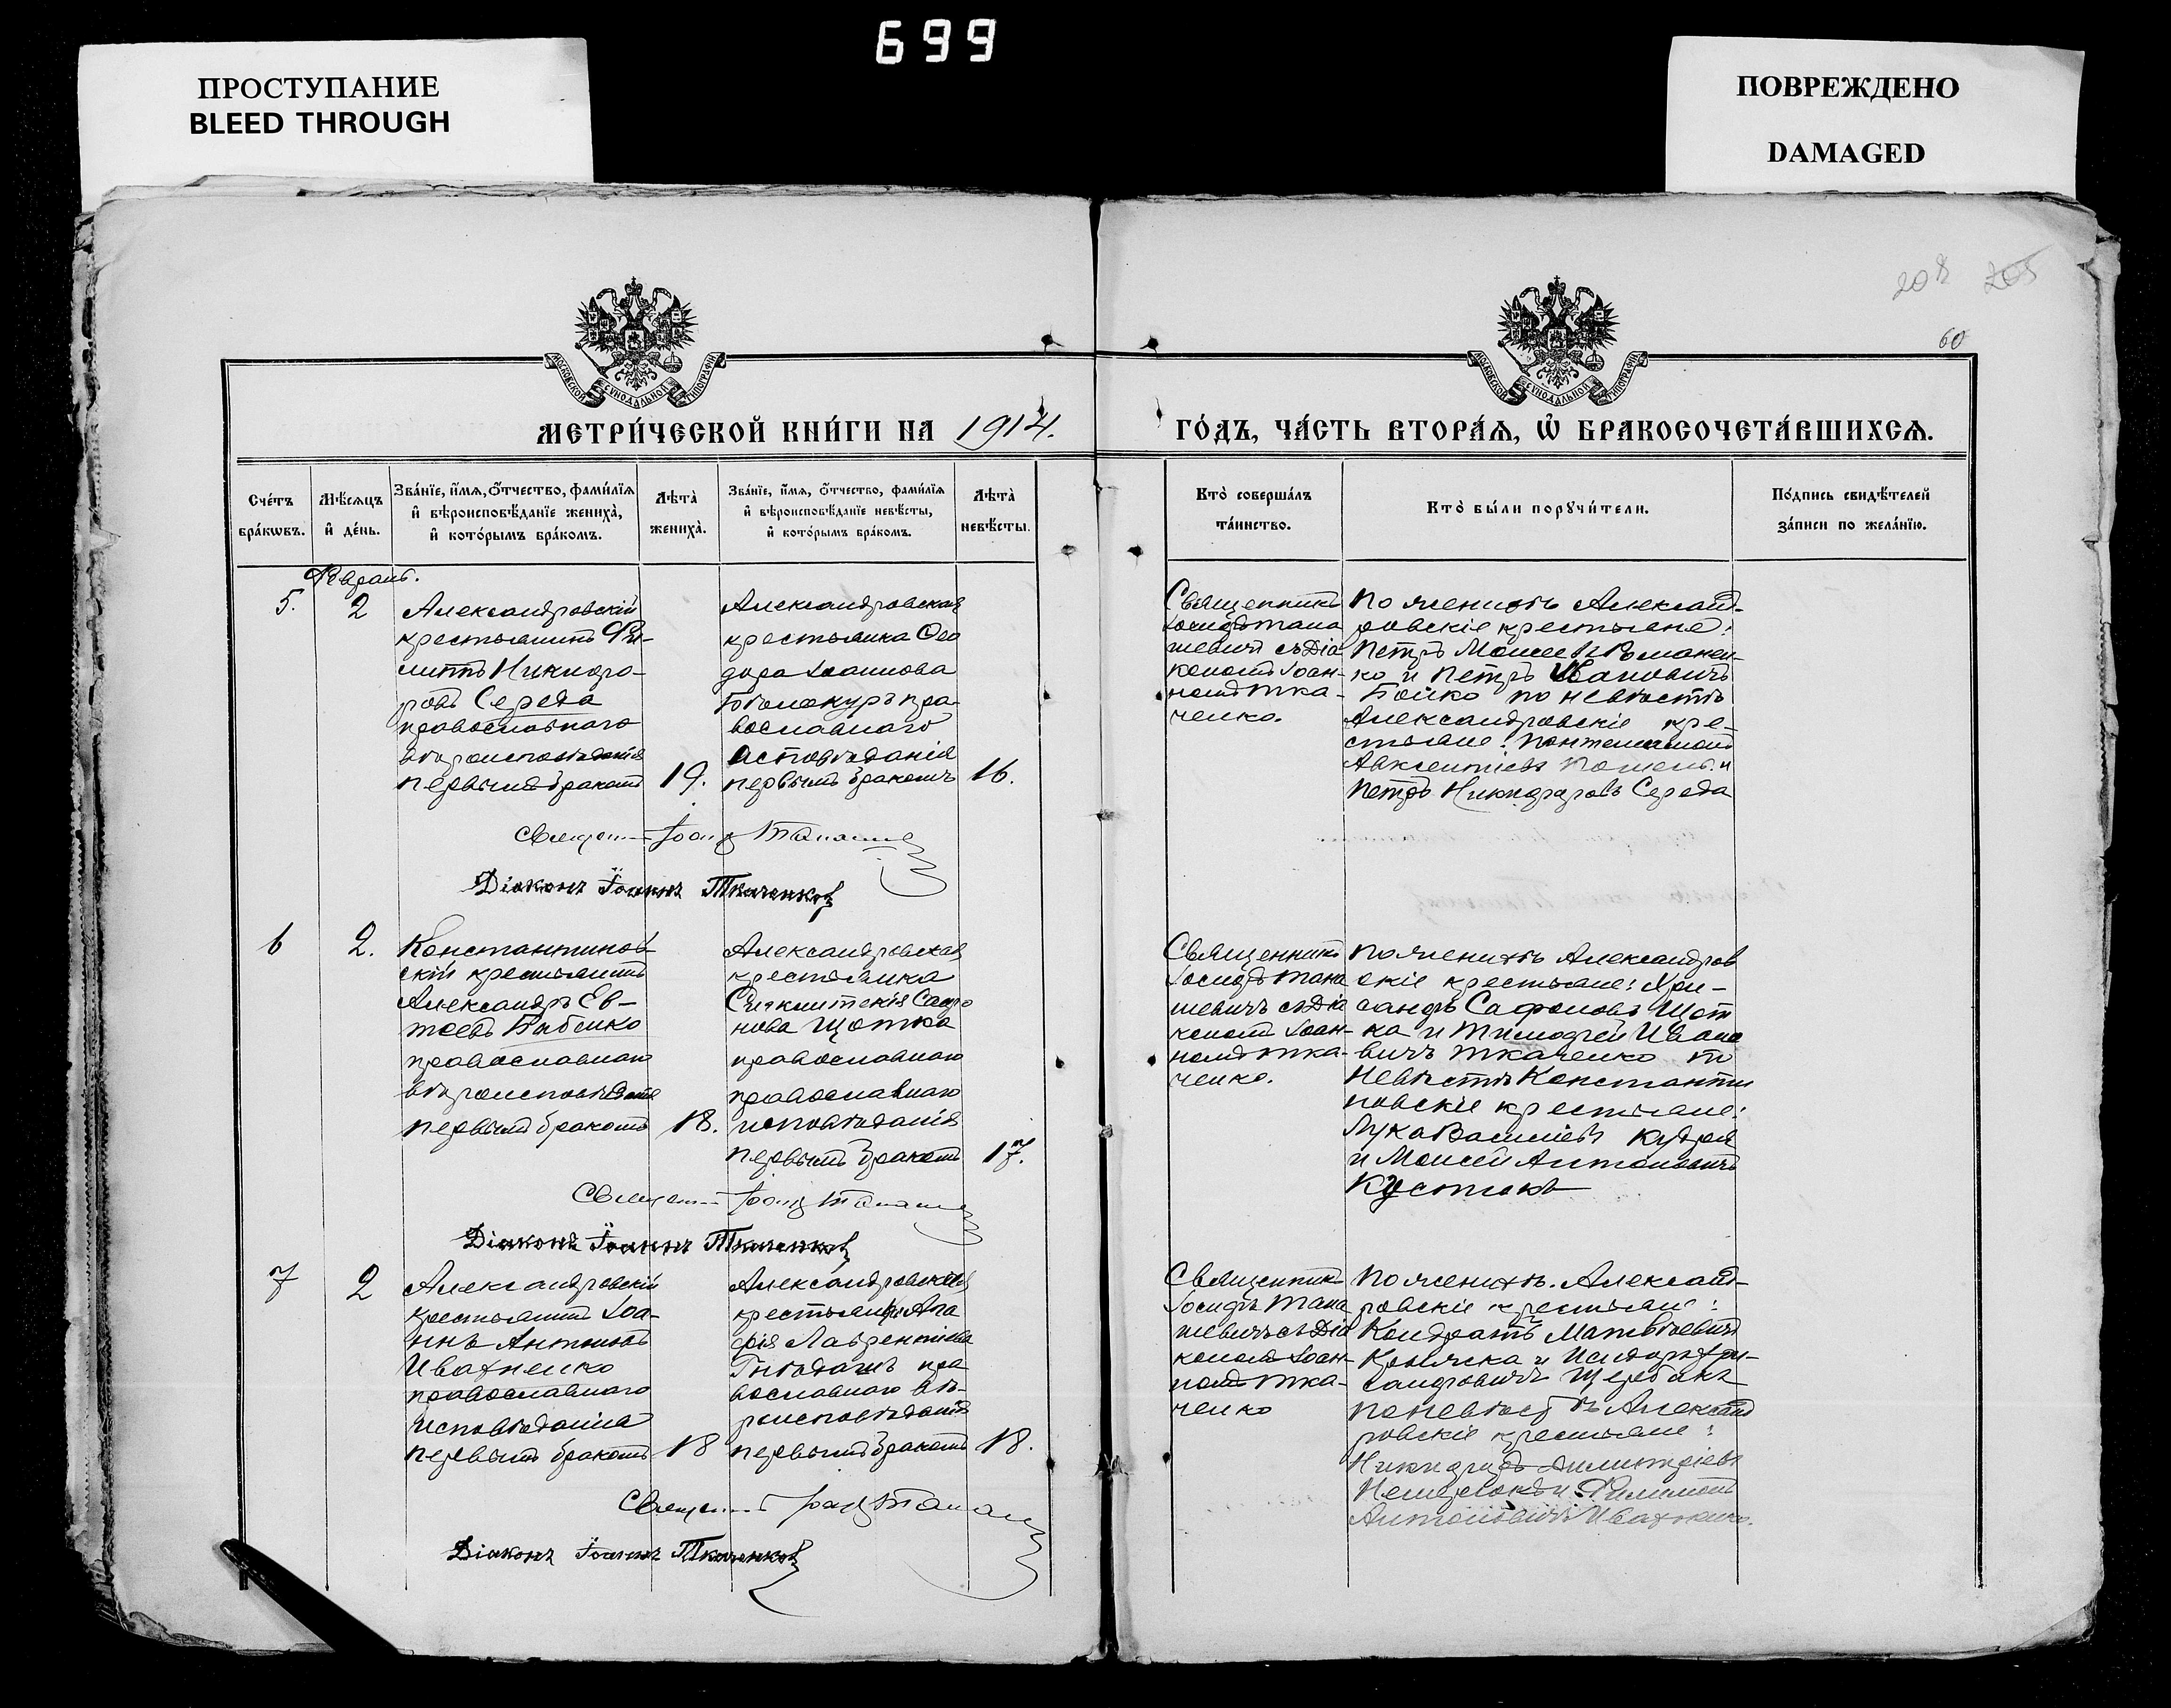 699
ПРОСТУПАНИЕ
BLEED THROUGH
ПОВРЕЖДЕНО
DAMAGED
208 205
60
МОСКОВСКОЙ СѴНОДАЛЬНОЙ ТИПОГРАФІИ
МОСКОВСКОЙ СѴНОДАЛЬНОЙ ТИПОГРАФІИ
МЕТРИ́ЧЕСКОЙ КНИ́ГИ НА 1914.
ГО́ДЪ, ЧА́СТЬ ВТОРА́Ѧ, Ѽ БРАКОСОЧЕТА́ВШИХСѦ.
Сче́тъ
бра́кѡвъ.
Мѣ́сѧцъ
и҆ де́нь.
Зва́нїе, и҆́мѧ, ѻ҆́тчество, фами́лїѧ
и҆ вѣроисповѣ́данїе жениха̀,
и҆ кото́рымъ бра́комъ.
Лѣта̀
жениха̀.
Зва́нїе, и҆́мѧ, ѻ҆́тчество, фами́лїѧ
и҆ вѣроисповѣ́данїе невѣ́сты,
и҆ кото́рымъ бра́комъ.
Лѣта̀
невѣ́сты.
Кто̀ соверша́лъ
та́инство.
Кто̀ бы́ли порꙋчи́тели.
По́дпись свидѣ́телей
за́писи по жела́нїю.
Февраль.
5.
2
Александровскій
крестьянинъ Фи-
липпъ Никифо-
ровъ Середа
православнаго
вѣроисповѣданія
первымъ бракомъ
19.
Александровская
крестьянка Ѳео
дора Іоаннова
Бѣлокуръ пра-
вославнаго
исповѣданія
первымъ бракомъ
16.
Священникъ
Іосифъ Тана
шевичъ съ Діа
кономъ Іоан-
номъ Тка-
ченко.
По женихѣ Александ-
ровскіе крестьяне:
Петръ Моисеев Романен-
ко и Петръ Ивановичъ
Бойко по невѣстѣ
Александровскіе кре-
стьяне: Пантелимонъ
Авксентіевъ и
Петръ Никифоровъ Середа
Діаконъ Іоаннъ Ткаченковъ
6
2.
Константинов-
скій крестьянинъ
Александръ Ев-
тѣевъ Бабенко
православнаго
вѣроисповѣданія
первымъ бракомъ
18.
Александровская
крестьянка
Синклитикія Сафро
нова Щотка
православнаго
православнаго
исповѣданія
первымъ бракомъ
17.
Священникъ
Іосифъ Тана
шевичъ съ Діа
кономъ Іоан-
номъ Тка-
ченко.
По женихѣ Александров
скіе крестьяне: Хри-
санфъ Сафоновъ Щот
ка и Тимофей Ивано
вичъ Ткаченко по
невѣстѣ Константи
новскіе крестьяне:
Лука Васильевъ Кудря
и Моисей Антоновичъ
Діаконъ Іоаннъ Ткаченковъ
7
2
Александровскій
крестьянинъ Іоа-
ннъ Антоновъ
Ивахненко
православнаго
исповѣданія
первымъ бракомъ
18
Александровская
крестьянка Ага
фія Лаврентіева
Гнѣдашъ пра
вославнаго вѣ-
роисповѣданія
первымъ бракомъ
18.
Священникъ
Іосифъ Тана
шевичъ съ Діа
кономъ Іоан-
номъ Тка-
ченко
По женихѣ. Александ-
ровскіе крестьяне:
Кондратъ Матвѣевичъ
и Исидоръ Хри-
санфовичъ Щербакъ
по невѣстѣ Александ
ровскіе крестьяне:
Никифоръ Димитріевъ
и Филимонъ
Антоновичъ Ивахненко.
Діаконъ Іоаннъ Ткаченковъ